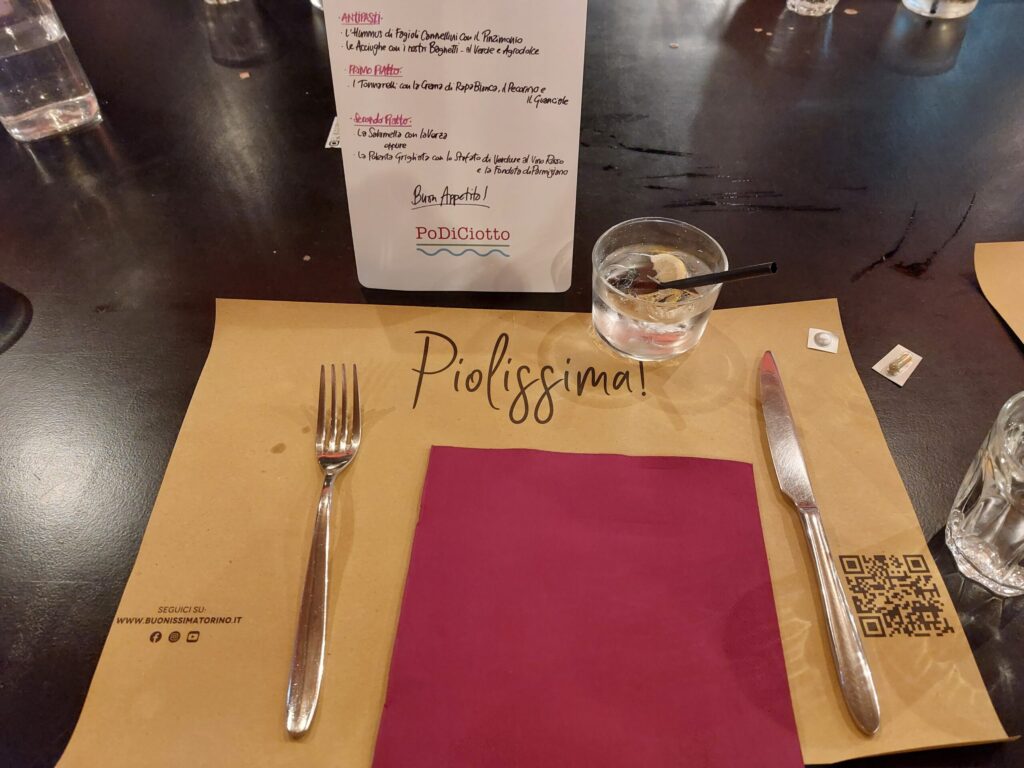 ANTIPASTI
· L'Hummus di Fagioli Cannellini con il Pinzimonio
· Le Acciughe con i nostri Bagnetti - al Verde e Agrodolce
PRIMO PIATTO:
· I Tonnarelli con la Crema di Rapa Bianca, il Pecorino e
il Guanciale
· Secondo Piatto:
La Salamella con la Verza
oppure
· La Polenta Grigliata con lo Stufato di Verdure al Vino Rosso
e la Fonduta di Parmigiano
Buon Appetito!
PoDiCiotto
Piolissima!
SEGUICI SU:
WWW.BUONISSIMATORINO.IT